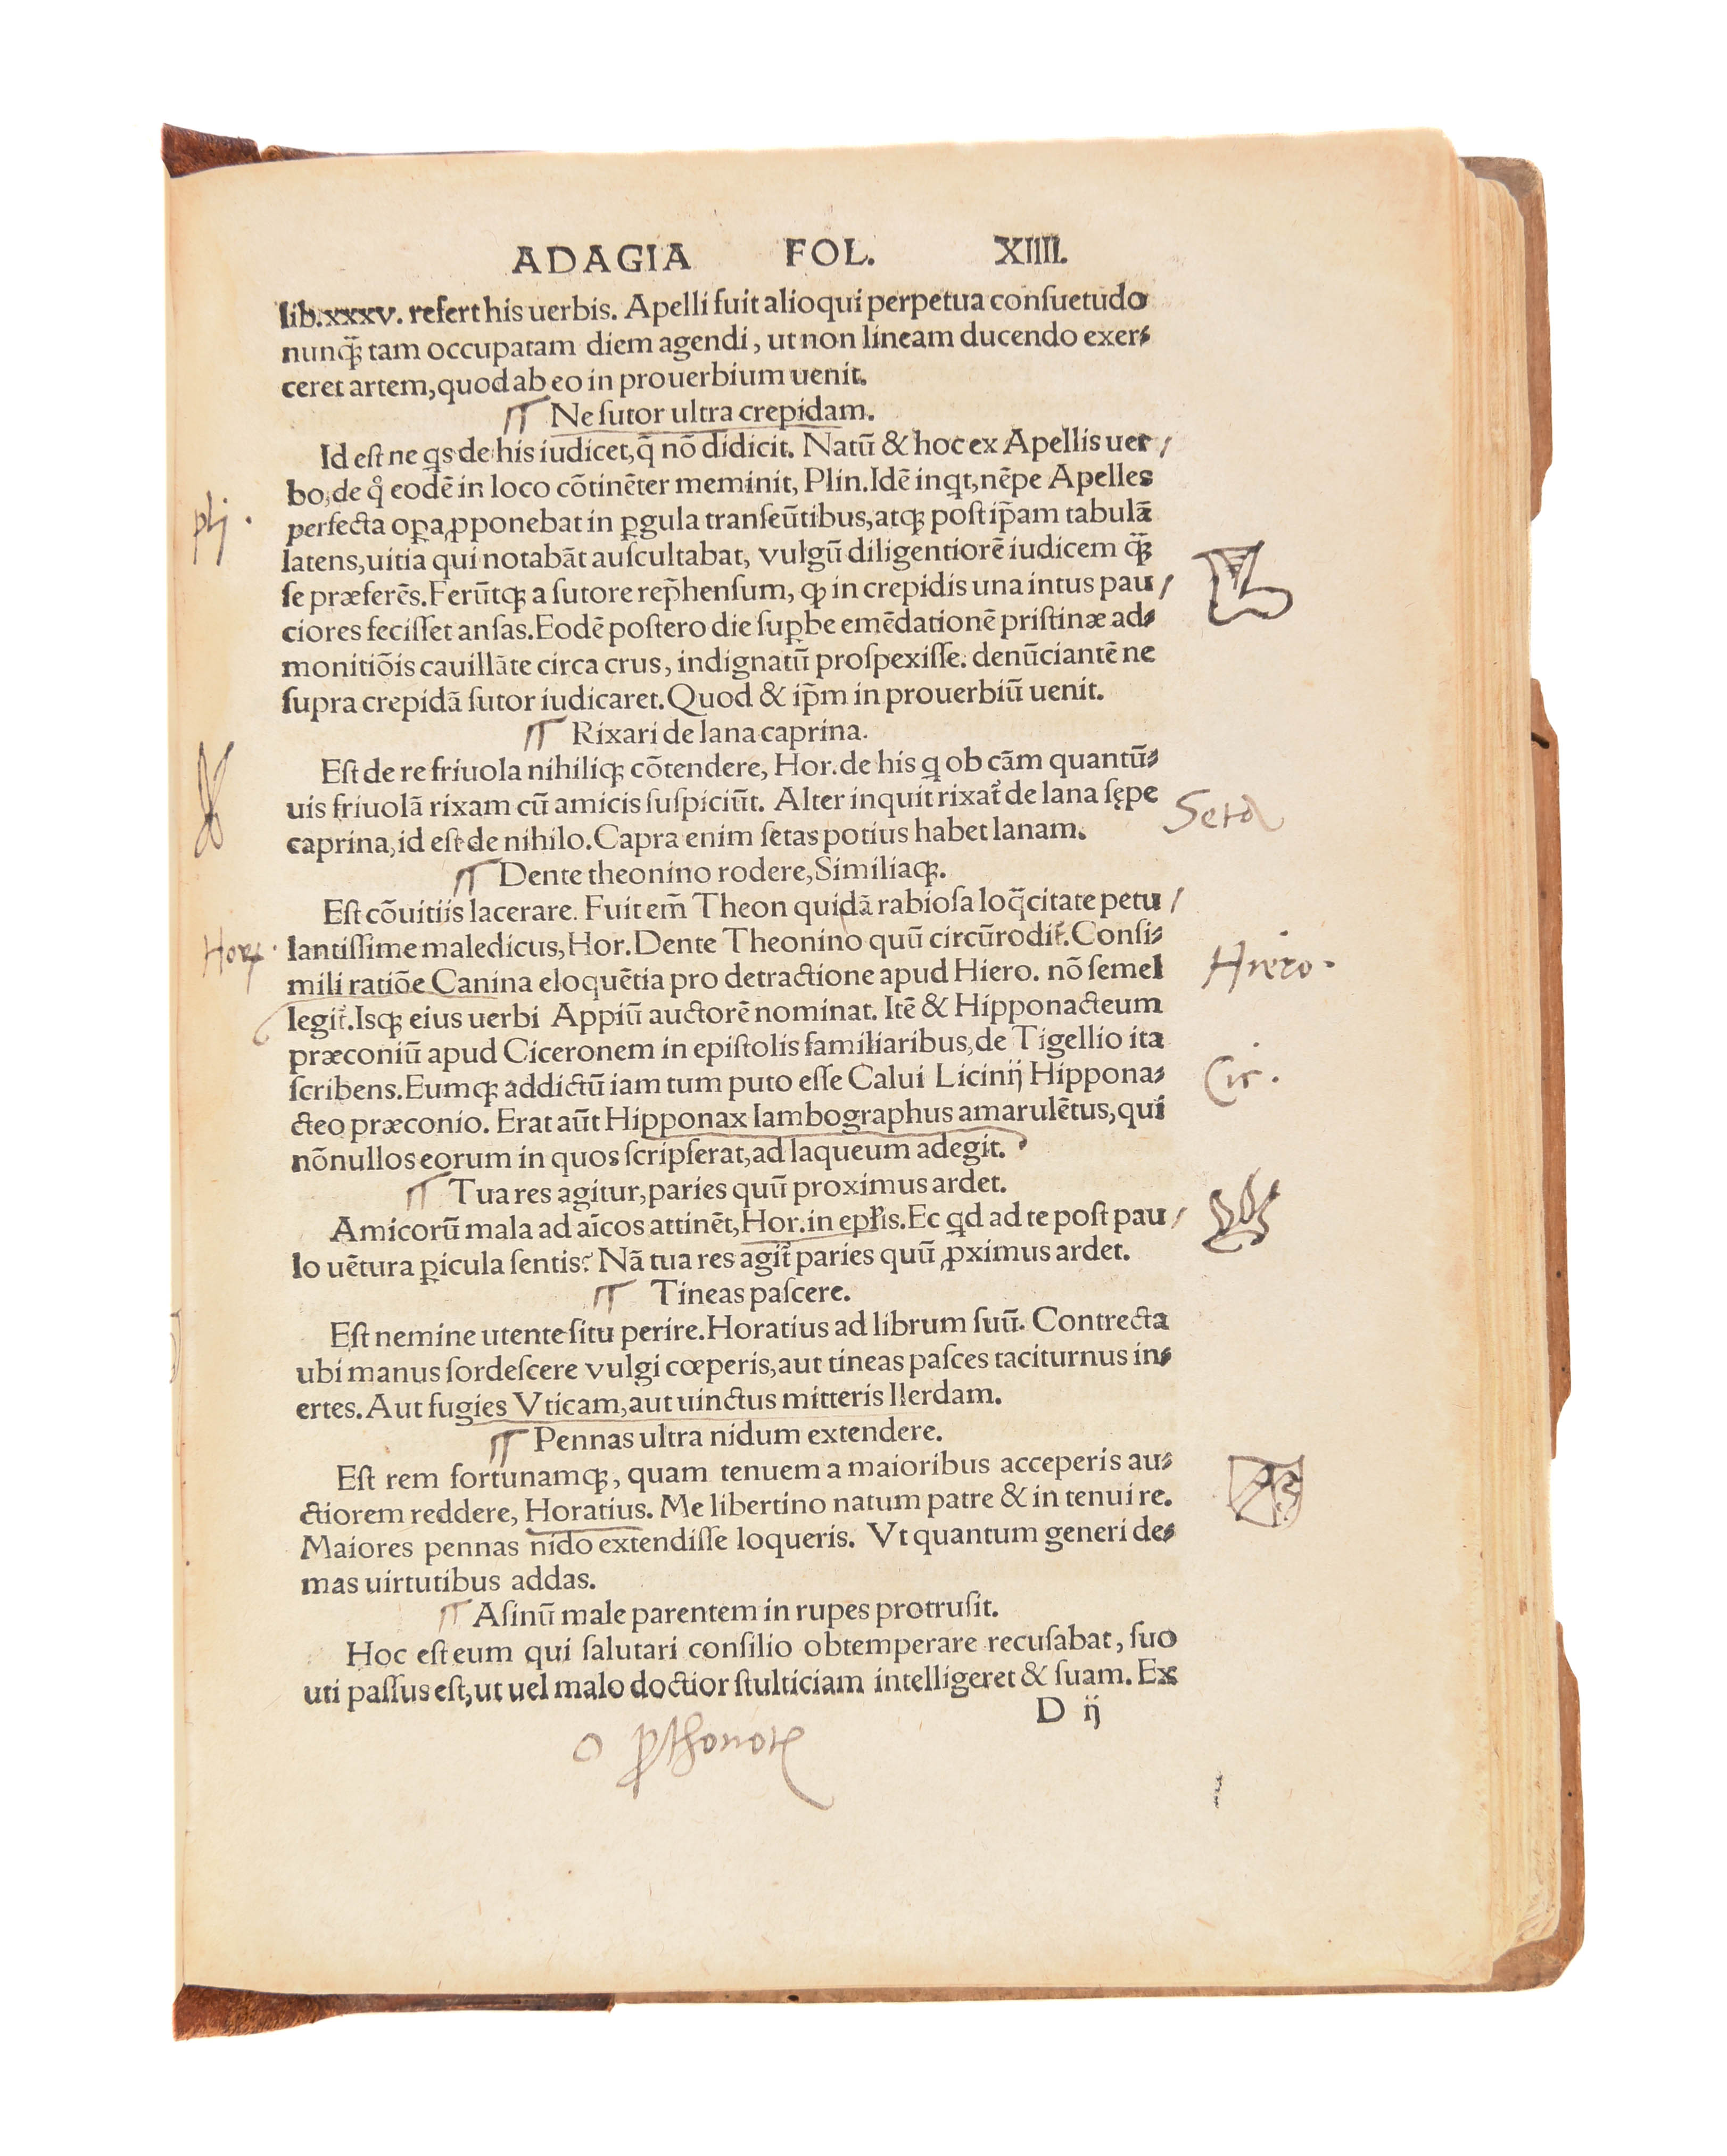 ADAGIA FOL. XIIII.
lib.xxxv. refert his uerbis. Apelli fuit alioqui perpetua conſuetudo
nunq̃ꝫ tam occupatam diem agendi, ut non lineam ducendo exer⸗
ceret artem, quod ab eo in prouerbium uenit.
Ne ſutor ultra crepidam.
Id est ne qs de his iudicet, q̃ nō didicit. Natū & hoc ex Apellis uer/
bo, de q̊ eodē in loco cōtinēter meminit, Plin. Idē inqt, nēpe Apelles
plj.
perfecta oꝑa ꝓponebat in ꝑgula tranſeūtibus, atqꝫ post ip̄am tabulā
latens, uitia qui notabāt auſcultabat, vulgū diligentiorē iudicem q̃ꝫ
ſe præferēs. Ferūtqꝫ a ſutore rep̄henſum, ꝙ in crepidis una intus pau/
ciores feciſſet anſas. Eodē poſtero die ſuꝑbe emēdationē priſtinæ ad⸗
monitiōis cauillāte circa crus, indignatū proſpexiſſe. denūciantē ne
ſupra crepidā ſutor iudicaret. Quod & ip̄m in prouerbiū uenit.
Rixari de lana caprina.
Eſt de re friuola nihiliqꝫ cōtendere, Hor. de his q ob cām quantū⸗
uis friuolā rixam cū amicis ſuſpiciūt. Alter inquit rixat̃ de lana ſępe
caprina, id eſt de nihilo. Capra enim ſetas potius habet lanam.
Dente theonino rodere, Similiaqꝫ.
Eſt cōuitijs lacerare. Fuit em̄ Theon quidā rabioſa loq̃citate petu/
lantiſſime maledicus, Hor. Dente Theonino quū circūrodit̃. Conſi⸗
Hiero.
mili ratiōe Canina eloquētia pro detractione apud Hiero. nō ſemel
legit̃. Isqꝫ eius uerbi Appiū auctorē nominat. Itē & Hipponacteum
præconiū apud Ciceronem in epiſtolis familiaribus, de Tigellio ita
Cic.
ſcribens. Eumqꝫ addictū iam tum puto eſſe Calui Licinij Hippona⸗
cteo præconio. Erat aūt Hipponax Iambographus amarulētus, qui
nōnullos eorum in quos ſcripſerat, ad laqueum adegit.
Tua res agitur, paries quū proximus ardet.
Amicorū mala ad aīcos attinēt, Hor. in epl̃is. Ec qd ad te poſt pau/
lo uētura ꝑicula ſentis? Nā tua res agit̃ paries quū ꝓximus ardet.
Tineas paſcere.
Eſt nemine utente ſitu perire. Horatius ad librum ſuū. Contrecta
ubi manus ſordeſcere vulgi cœperis, aut tineas paſces taciturnus in⸗
ertes. Aut fugies Vticam, aut uinctus mitteris Ilerdam.
Pennas ultra nidum extendere.
Eſt rem fortunamqꝫ, quam tenuem a maioribus acceperis au⸗
ctiorem reddere, Horatius. Me libertino natum patre & in tenui re.
Maiores pennas nido extendiſſe loqueris. Vt quantum generi de⸗
mas uirtutibus addas.
Aſinū male parentem in rupes protruſit.
Hoc eſt eum qui ſalutari conſilio obtemperare recuſabat, ſuo
uti paſſus eſt, ut uel malo doctior ſtulticiam intelligeret & ſuam. Ex
D ij